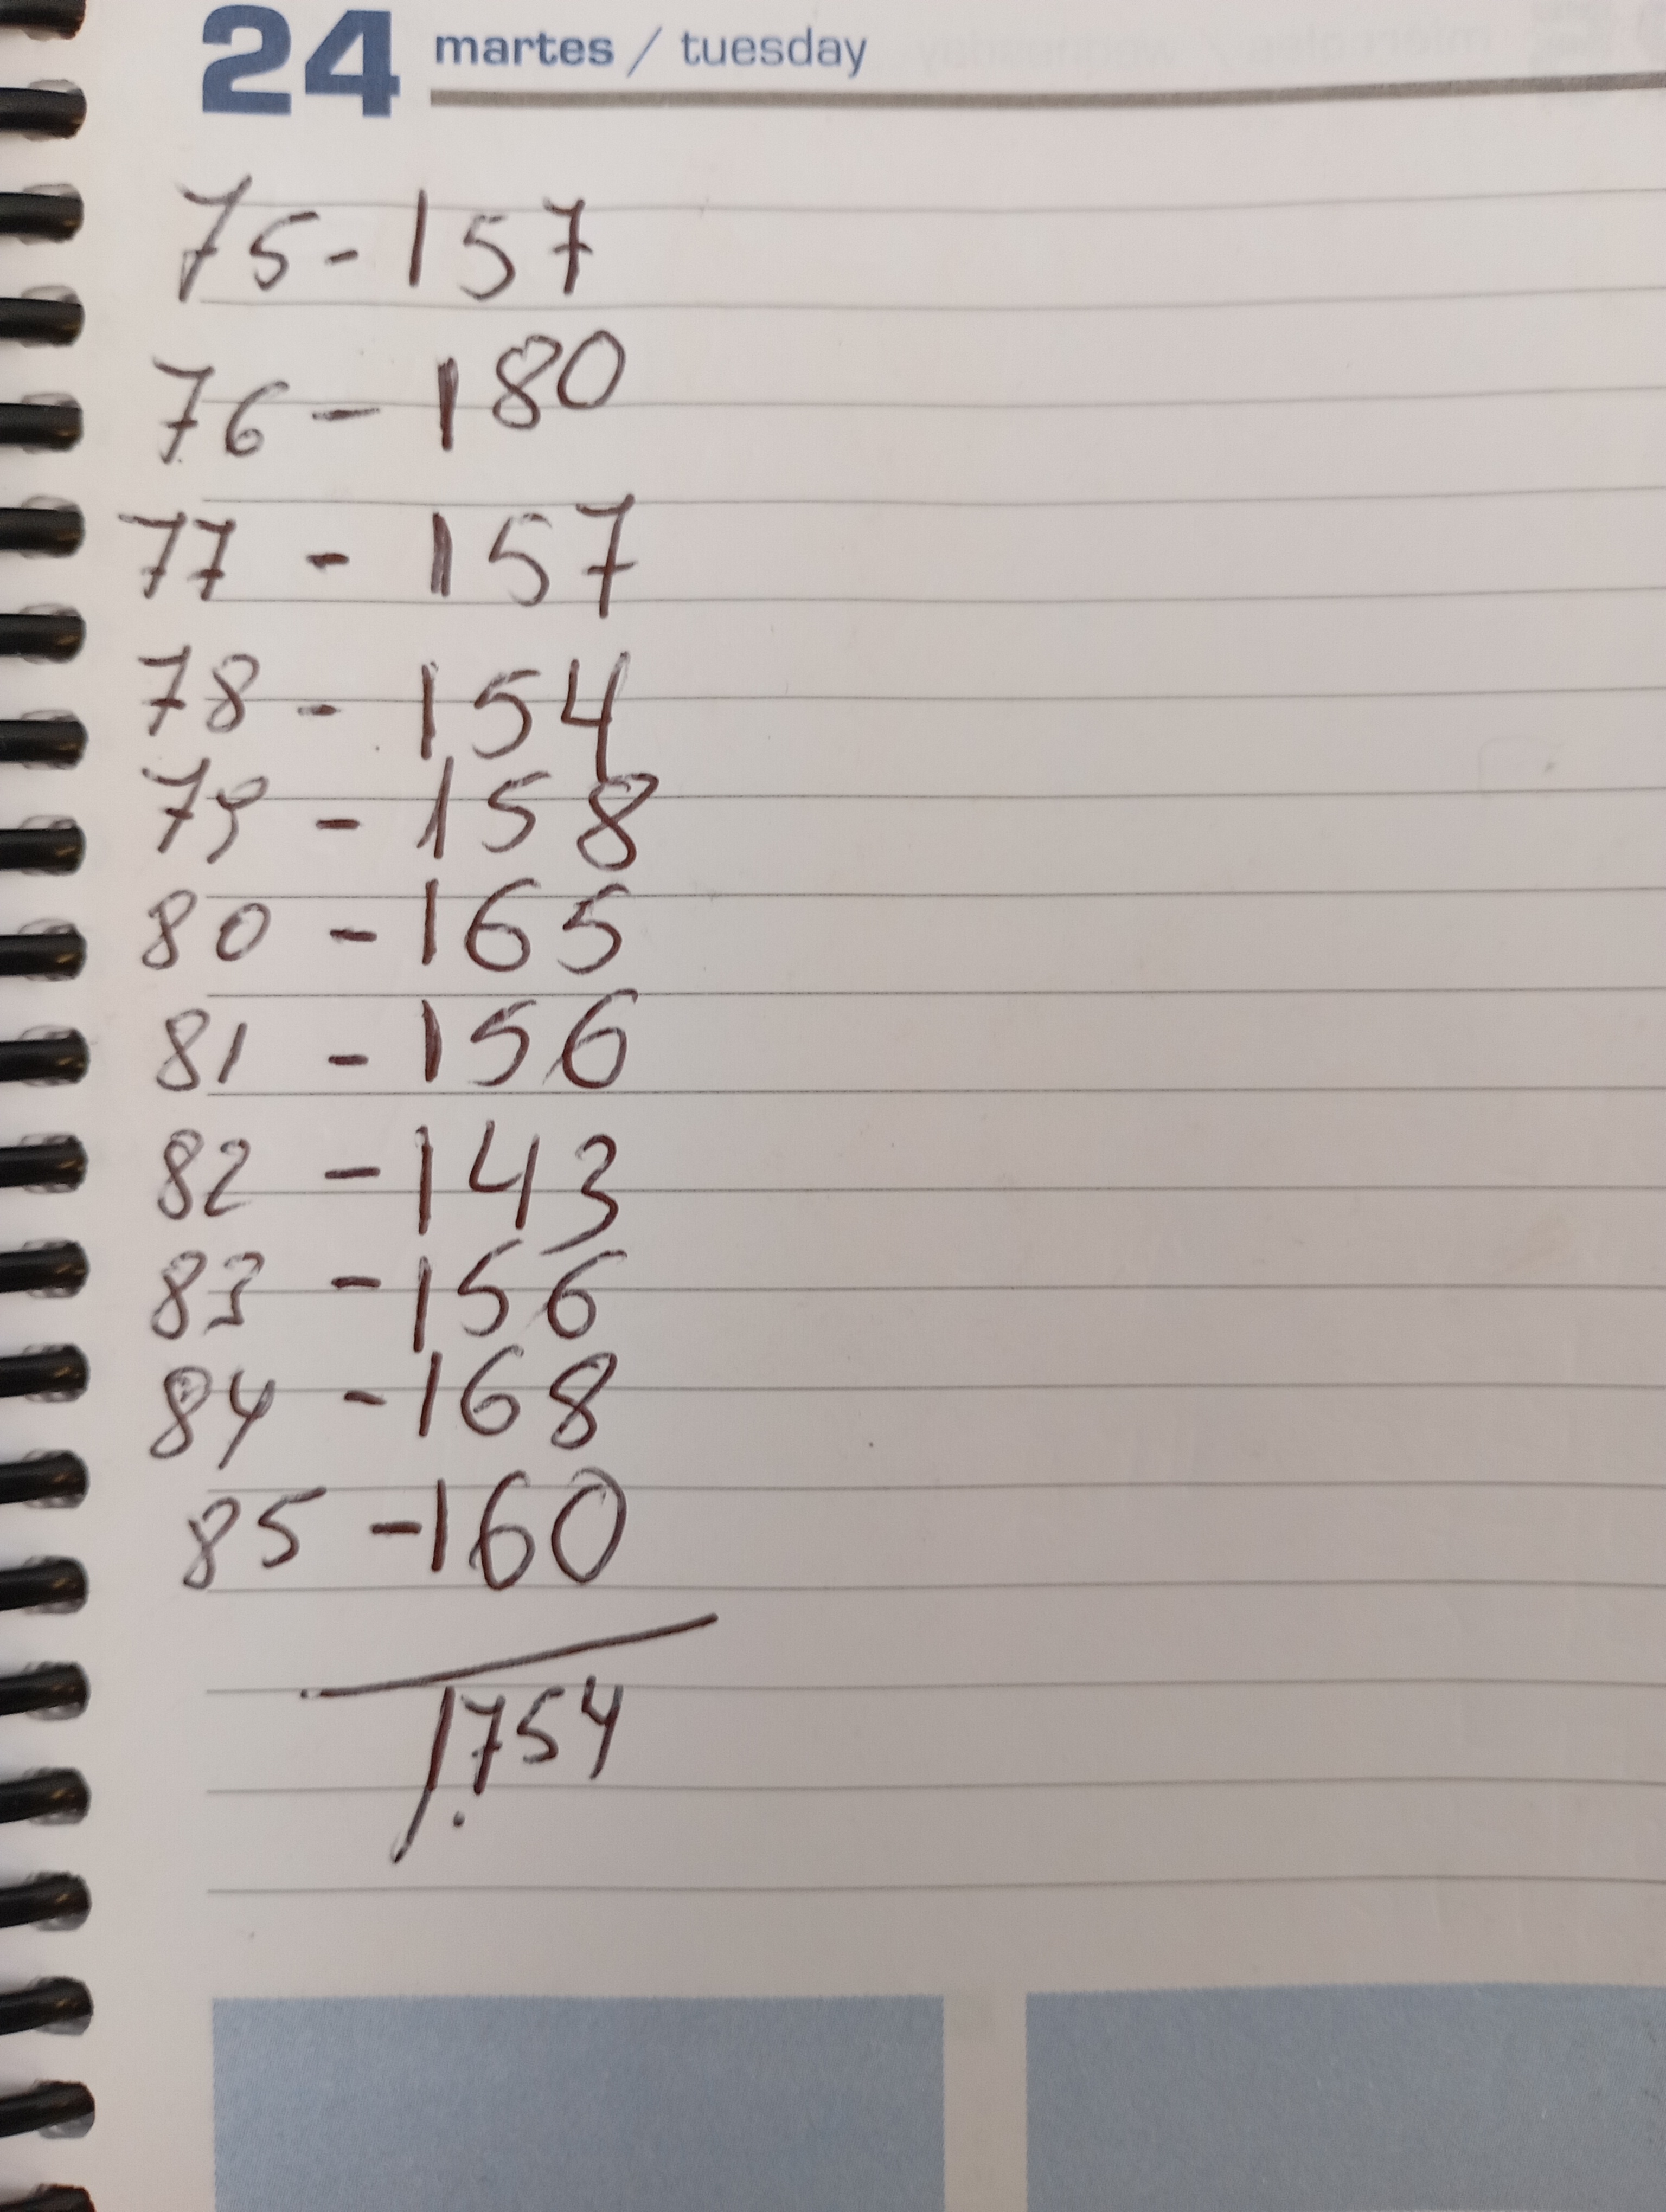 24 martes / tuesday
75-157
76-180
77-157
78-154
79-158
80-165
81-156
82-143
83-156
84-168
85-160
1754